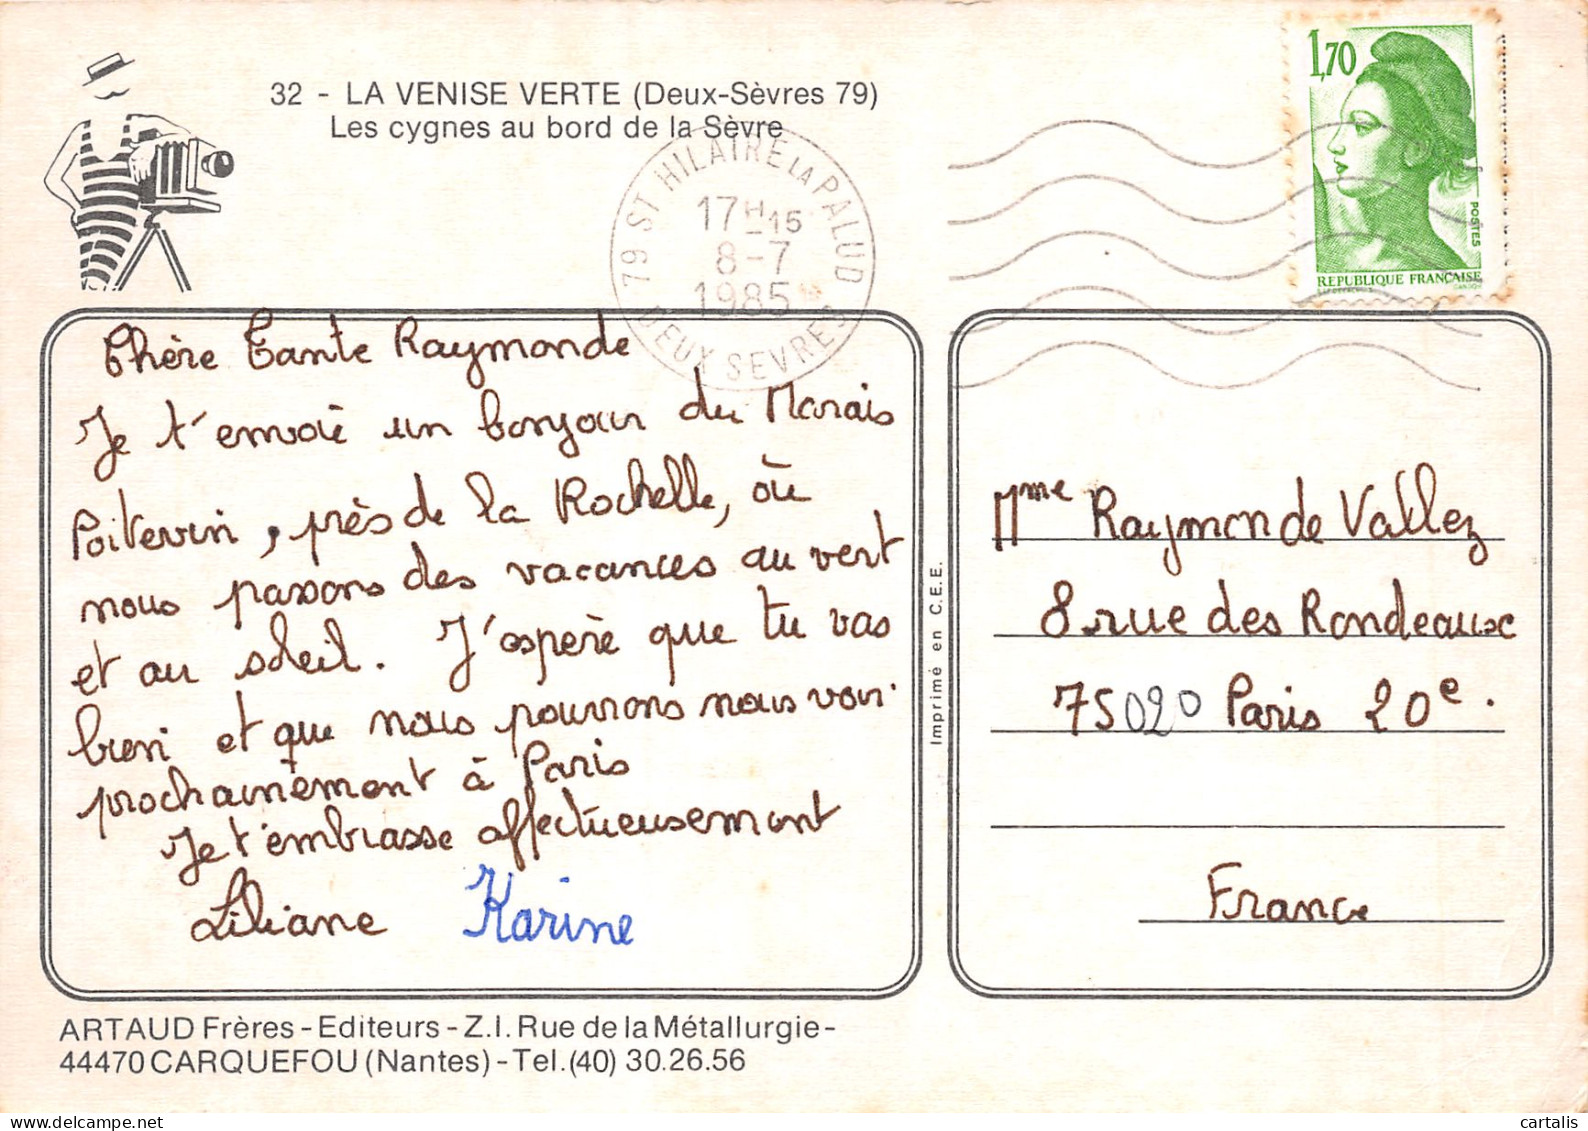 32 - LA VENISE VERTE (Deux-Sèvres 79)
Les cygnes au bord de la Sèvre
79 ST HILAIRE LA PALUD
17H15
8-7
1985
DEUX SEVRES
1,70
POSTES
REPUBLIQUE FRANÇAISE
Chère Tante Raymonde
Je t'envoie un bonjour du Marais
Poitevin, près de la Rochelle, où
nous passons des vacances au vert
et au soleil. J'espère que tu vas
bien et que nous pourrons nous voir
prochainement à Paris
Je t'embrasse affectueusement
Liliane Karine
Imprimé en C.E.E.
Mme Raymonde Vallez
8 rue des Rondeaux
75020 Paris 20e.
France
ARTAUD Frères - Editeurs - Z.I. Rue de la Métallurgie -
44470 CARQUEFOU (Nantes) - Tel. (40) 30.26.56
cartalis